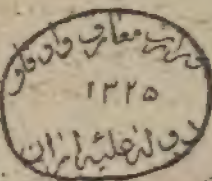 وزارت معارف و اوقاف
۱۳۲۵
دولت علیه ایران